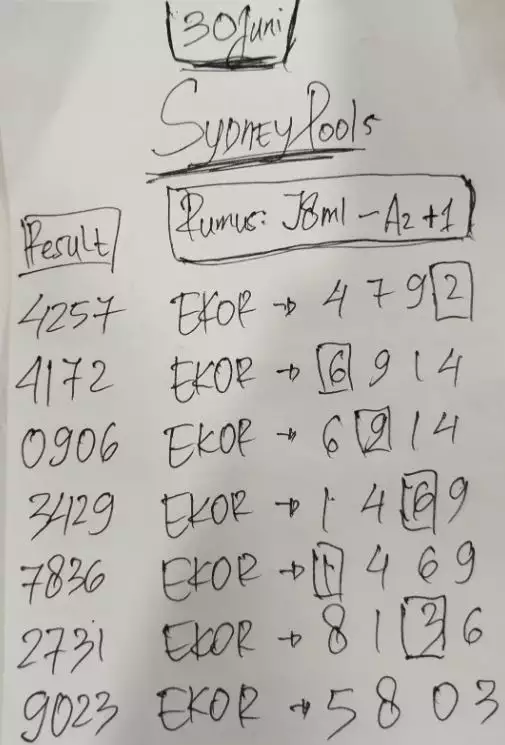 30 Juni
SYDNEY Pools
Result Rumus: J8ml - A2 + 1
4257 EKOR → 4 7 9 2
4172 EKOR → 6 9 1 4
0906 EKOR → 6 9 1 4
3429 EKOR → 1 4 6 9
7836 EKOR → 1 4 6 9
2731 EKOR → 8 1 3 6
9023 EKOR → 5 8 0 3